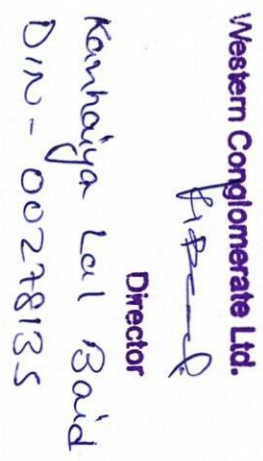 Western Conglomerate Ltd.
Director
Kanhaiya Lal Baid
DIN - 00278135